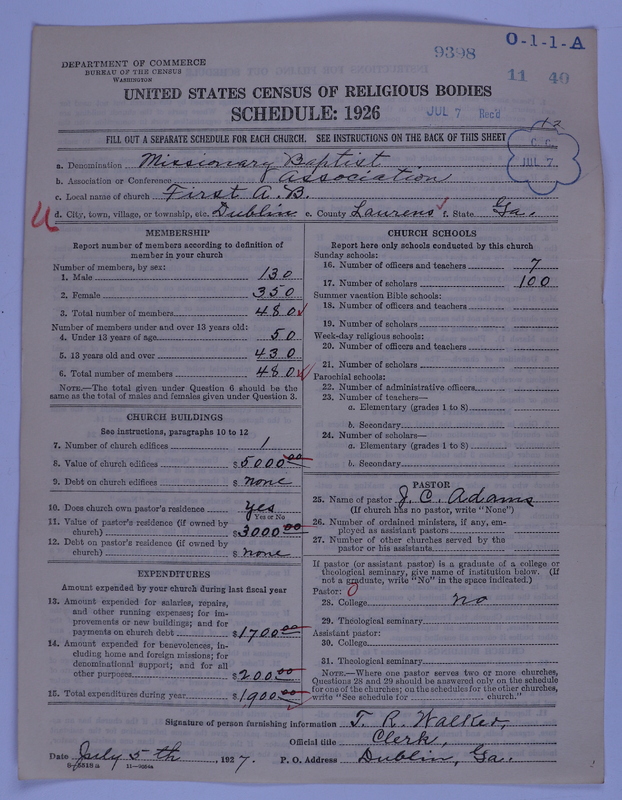 9398
O-1-1-A
11 40
DEPARTMENT OF COMMERCE
BUREAU OF THE CENSUS
WASHINGTON
UNITED STATES CENSUS OF RELIGIOUS BODIES
SCHEDULE: 1926
JUL 7 Rec'd
FILL OUT A SEPARATE SCHEDULE FOR EACH CHURCH. SEE INSTRUCTIONS ON THE BACK OF THIS SHEET
C. C.
JUL 7
a. Denomination Missionary Baptist
b. Association or Conference Association
c. Local name of church First A. B.
d. City, town, village, or township, etc. Dublin e. County Laurens f. State Ga.
MEMBERSHIP
Report number of members according to definition of
member in your church
Number of members, by sex:
1. Male 130
2. Female 350
3. Total number of members 480
Number of members under and over 13 years old:
4. Under 13 years of age 50
5. 13 years old and over 430
6. Total number of members 480
NOTE.—The total given under Question 6 should be the
same as the total of males and females given under Question 3.
CHURCH BUILDINGS
See instructions, paragraphs 10 to 12
7. Number of church edifices 1
8. Value of church edifices $5000.00
9. Debt on church edifices $ none
10. Does church own pastor's residence yes
Yes or No
11. Value of pastor's residence (if owned by
church) $3000.00
12. Debt on pastor's residence (if owned by
church) $ none
EXPENDITURES
Amount expended by church during last fiscal year
13. Amount expended for salaries, repairs,
and other running expenses; for im-
provements or new buildings; and for
payments on church debt $1700.00
14. Amount expended for benevolences, in-
cluding home and foreign missions; for
denominational support; and for all
other purposes $200.00
15. Total expenditures during year $1900.00
CHURCH SCHOOLS
Report here only schools conducted by this church
Sunday schools:
16. Number of officers and teachers 7
17. Number of scholars 100
Summer vacation Bible schools:
18. Number of officers and teachers
19. Number of scholars
Week-day religious schools:
20. Number of officers and teachers
21. Number of scholars
Parochial schools:
22. Number of administrative officers
23. Number of teachers—
a. Elementary (grades 1 to 8)
b. Secondary
24. Number of scholars—
a. Elementary (grades 1 to 8)
b. Secondary
PASTOR
25. Name of pastor J. C. Adams
(If church has no pastor, write "None")
26. Number of ordained ministers, if any, em-
ployed as assistant pastors
27. Number of other churches served by the
pastor or his assistants
If pastor (or assistant pastor) is a graduate of a college or
theological seminary, give name of institution below. (If
not a graduate, write "No" in the space indicated.)
Pastor: 0
28. College no
29. Theological seminary
Assistant pastor:
30. College
31. Theological seminary
NOTE.—Where one pastor serves two or more churches,
Questions 28 and 29 should be answered only on the schedule
for one of the churches; on the schedules for the other churches,
write "See schedule for church."
Signature of person furnishing information T. R. Walker,
Official title Clerk,
Date July 5th, 1927. P. O. Address Dublin, Ga.